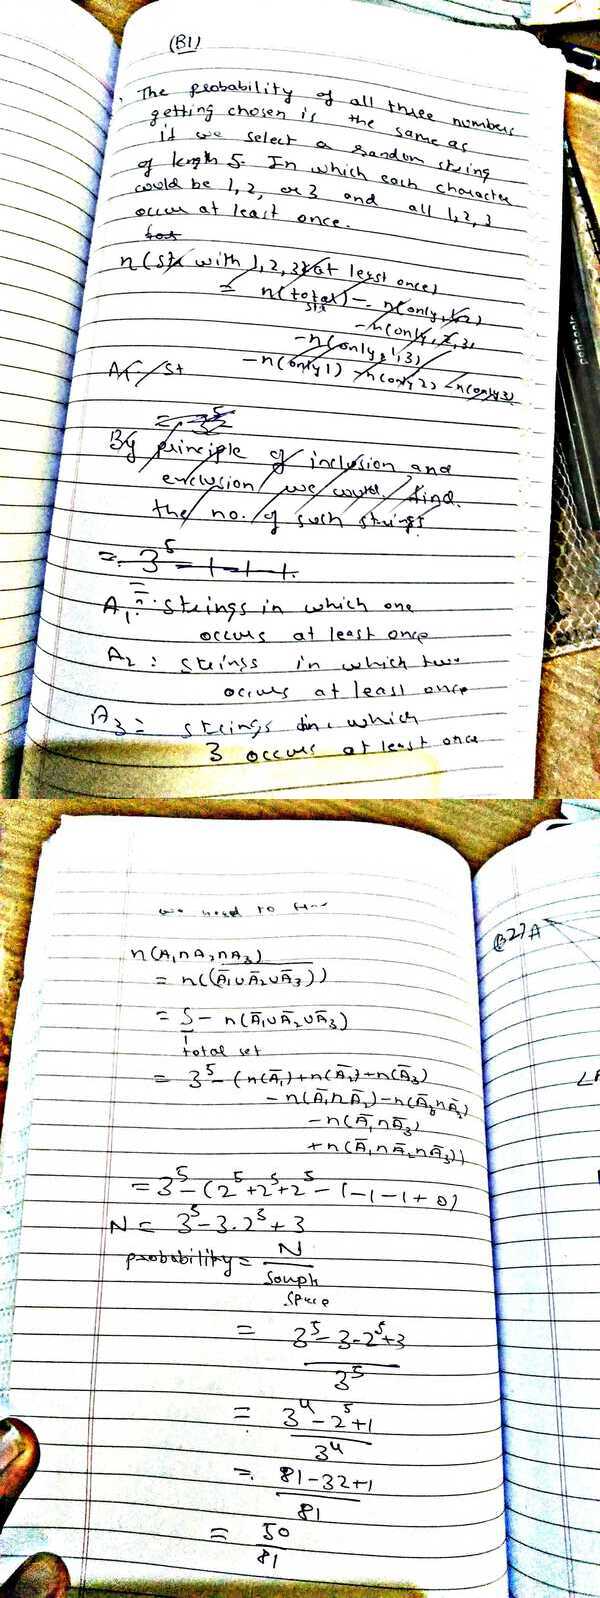 (B1)
The probability of all three numbers
getting chosen is the same as
if we select a random string
of length 5. In which each character
could be 1, 2, or 3 and all 1, 2, 3
occur at least once.
n(str with 1, 2, 3 at least once)
= n(total str) - n(only 1, 2)
- n(only, 2, 3)
- n(only 1, 3)
- n(only 1) - n(only 2) - n(only 3)
A / St
By principle of inclusion and
exclusion we could find
the no. of such strings
= 3^5 - 1 - 1 - 1
A₁ : strings in which one
occurs at least once
A₂ : strings in which two
occurs at least once
A₃ = strings in which
3 occurs at least once
we need to find
n(A₁∩A₂∩A₃)
= n((Ā₁∪Ā₂∪Ā₃))
= S - n(Ā₁∪Ā₂∪Ā₃)
total set
= 3^5 - (n(Ā₁)+n(Ā₂)+n(Ā₃)
- n(Ā₁∩Ā₂) - n(Ā₂∩Ā₃)
- n(Ā₁∩Ā₃)
+ n(Ā₁∩Ā₂∩Ā₃))
= 3^5 - (2^5 + 2^5 + 2^5 - 1 - 1 - 1 + 0)
N = 3^5 - 3·2^5 + 3
probability = N
Sample
space
= 3^5 - 3·2^5 + 3
3^5
= 3^4 - 2^5 + 1
3^4
= 81 - 32 + 1
81
= 50
81
(B2) A